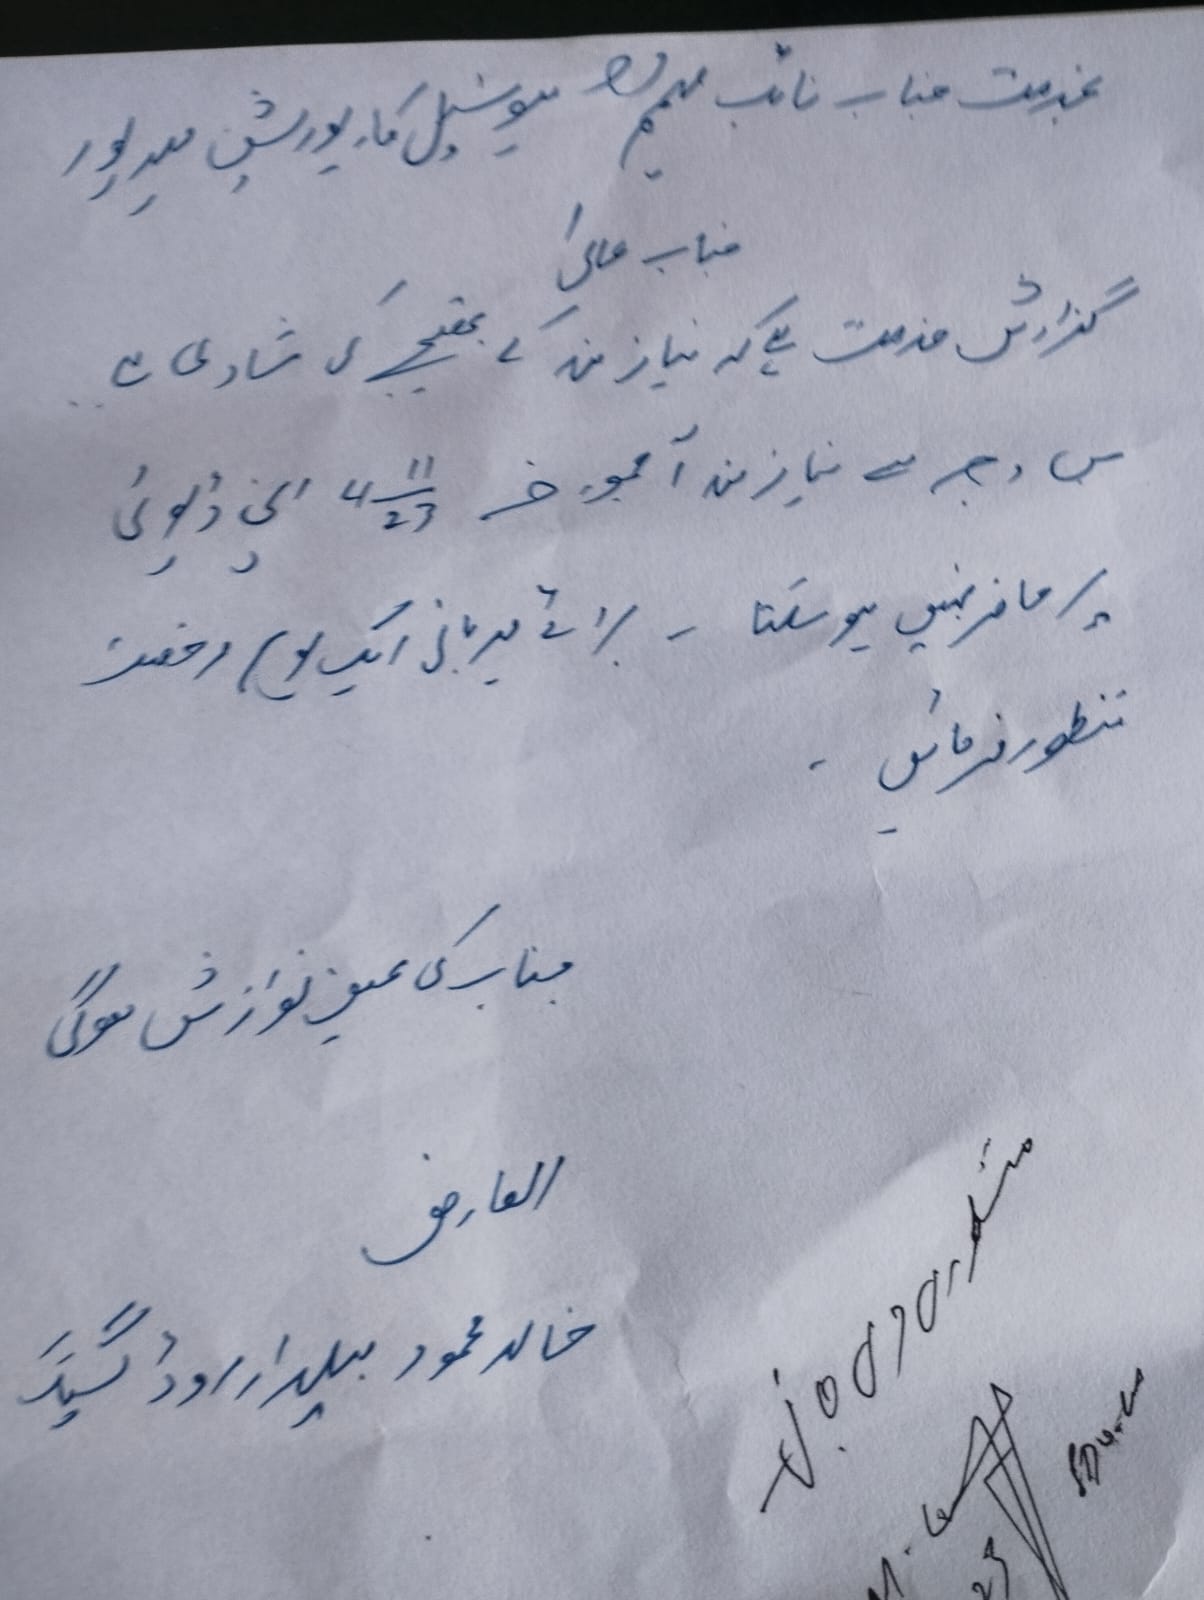 بخدمت جناب نائب مہتمم میونسپل کارپوریشن میرپور
جناب عالی
گذارش خدمت ہے کہ نیازمند کے بھتیجے کی شادی ہے
س وجہ سے نیازمند آج مورخہ 4 11/23 اپنی ڈیوٹی
پر حاضر نہیں ہو سکتا ۔ برائے مہربانی ایک یوم رخصت
منظور فرمائیں ۔
جناب کی عین نوازش ہوگی
العارض
خالد محمود بیلدار روڈ گینگ